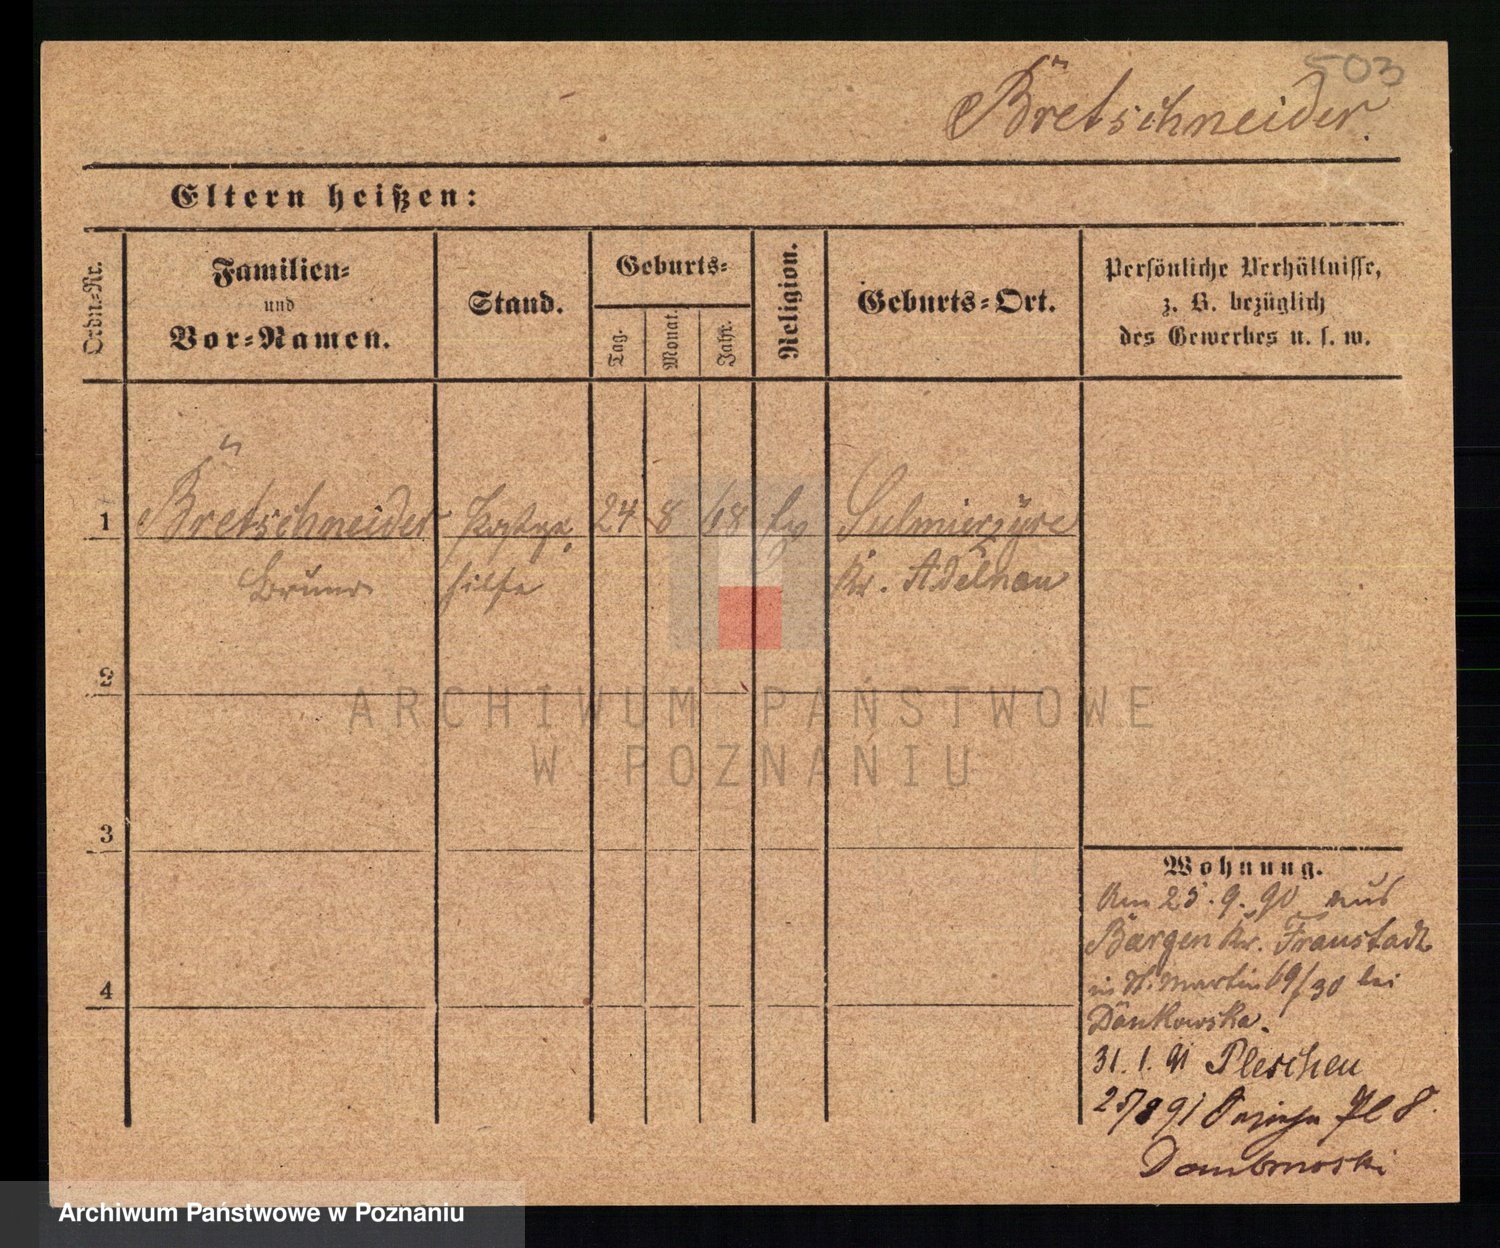 503
Bretschneider.
Eltern heißen:
Ordn=Nr.
Familien=
und
Vor=Namen.
Stand.
Geburts=
Tag.
Monat.
Jahr.
Religion.
Geburts=Ort.
Persönliche Verhältnisse,
z. B. bezüglich
des Gewerbes u. s. w.
1
Bretschneider
24
8
68
ev
Sulmierzyce
Bruno
hilfe
Kr. Adelnau
2
3
4
Wohnung.
Am 25. 9. 90 aus
Bargen Kr. Fraustadt
in St. Martin 69/30 bei
Dankowska.
31. 1. 91 Pleschen
25/8 91
Dombrowski
ARCHIWUM PAŃSTWOWE
W POZNANIU
Archiwum Państwowe w Poznaniu